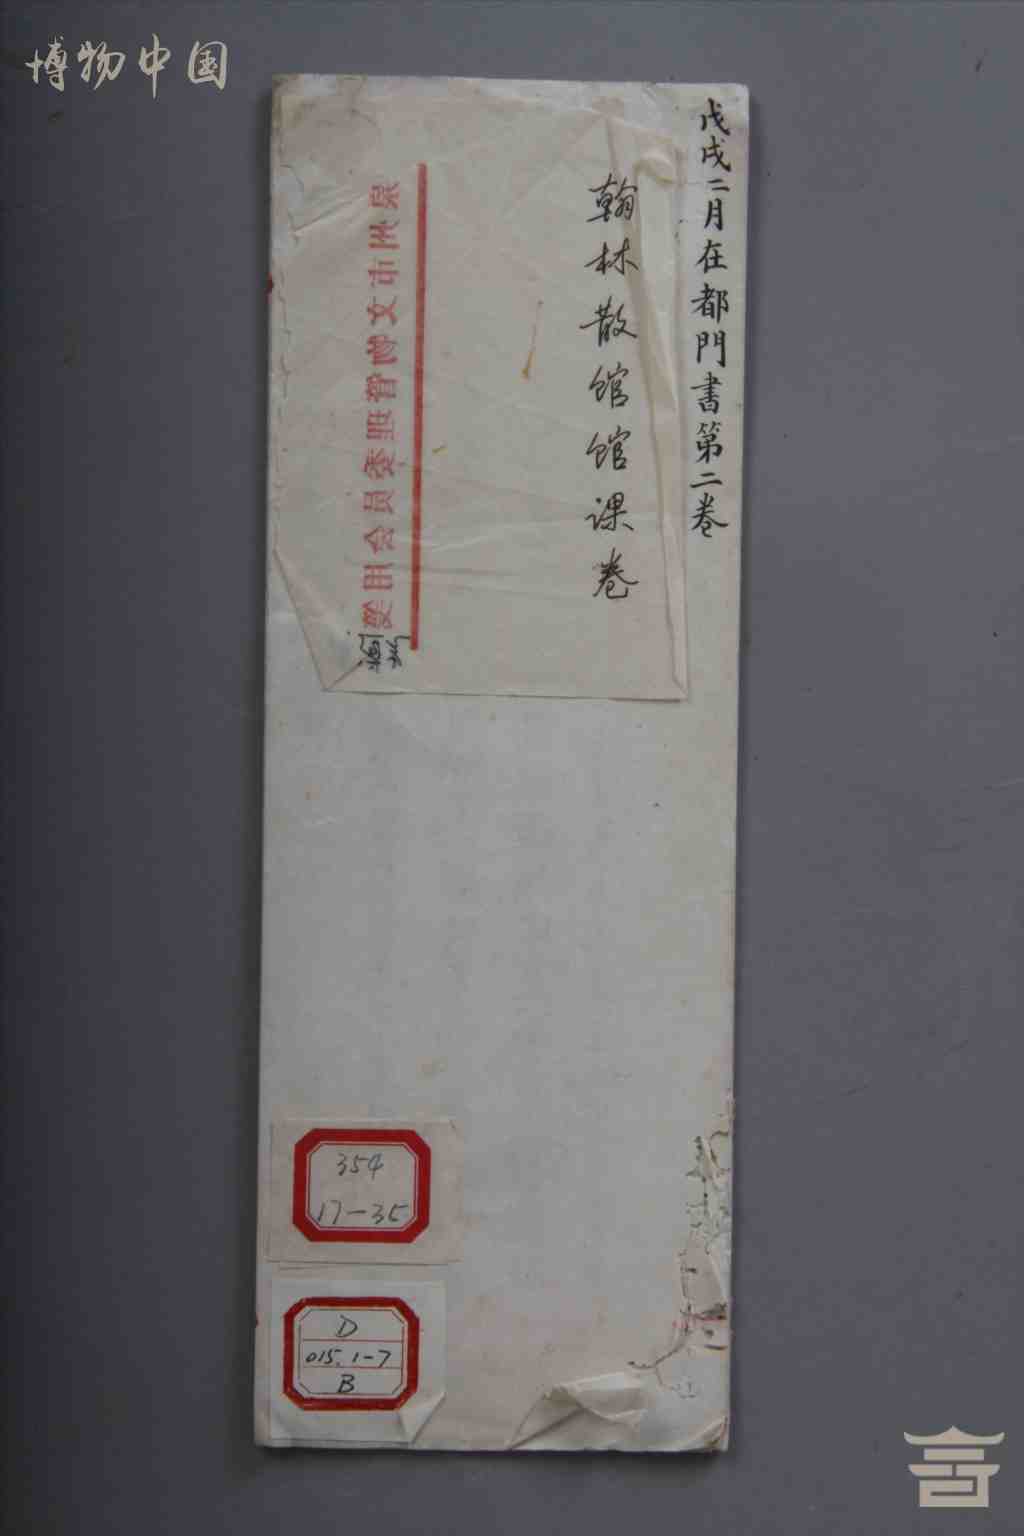 博物中国
戊戌二月在都門書第二卷
翰林散馆馆课卷
市文管理委员会用
354
17-35
D
015.1-7
B